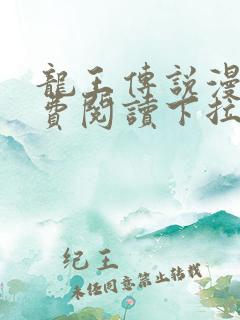 龍王傳說漫
費閱讀下拉
纪王
未经同意禁止转载